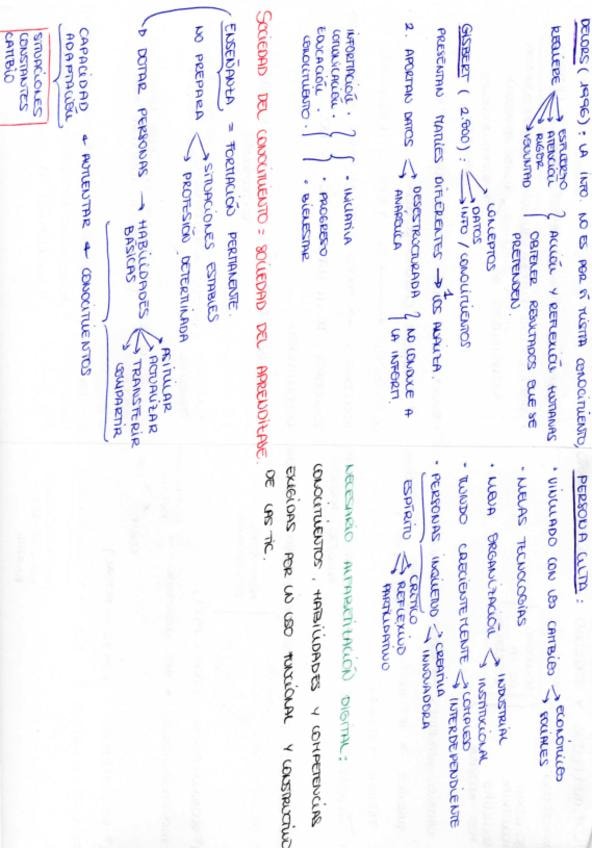 DELORS (1996): LA INFO. NO ES POR SÍ MISMA CONOCIMIENTO,
REQUIERE
ESFUERZO
ATENCIÓN
RIGOR
VOLUNTAD
ACCIÓN Y REFLEXIÓN HUMANAS
OBTENER RESULTADOS QUE SE
PRETENDEN.
GISBERT (2.000):
CONCEPTOS
DATOS
INFO / CONOCIMIENTOS
PRESENTAN MATICES DIFERENTES → LOS ANALIZA.
1
2. APORTAN DATOS
DESESTRUCTURADA
ANÁRQUICA
NO CONDUCE A
LA INFORM.
INFORMACIÓN.
COMUNICACIÓN.
EDUCACIÓN.
CONOCIMIENTO.
· INICIATIVA
· PROGRESO
· BIENESTAR
SOCIEDAD DEL CONOCIMIENTO = SOCIEDAD DEL APRENDIZAJE.
ENSEÑANZA = FORMACIÓN PERMANENTE.
NO PREPARA
SITUACIONES ESTABLES
PROFESIÓN DETERMINADA
DOTAR PERSONAS → HABILIDADES
BÁSICAS
ASIMILAR
ACTUALIZAR
TRANSFERIR
COMPARTIR
CAPACIDAD + AUMENTAR + CONOCIMIENTOS
ADAPTACIÓN
SITUACIONES
CONSTANTES
CAMBIO
PERSONA CULTA:
· VINCULADO CON LOS CAMBIOS
ECONÓMICOS
SOCIALES
· NUEVAS TECNOLOGÍAS
· NUEVA ORGANIZACIÓN
INDUSTRIAL
INSTITUCIONAL
· MUNDO CRECIENTEMENTE
COMPLEJO
INTERDEPENDIENTE
· PERSONAS INQUIETUD
CREATIVA
INNOVADORA
ESPÍRITU
CRÍTICO
REFLEXIVO
PARTICIPATIVO
NECESARIO ALFABETIZACIÓN DIGITAL:
CONOCIMIENTOS, HABILIDADES Y COMPETENCIAS
EXIGIDAS POR UN USO FUNCIONAL Y CONSTRUCTIVO
DE LAS TIC.